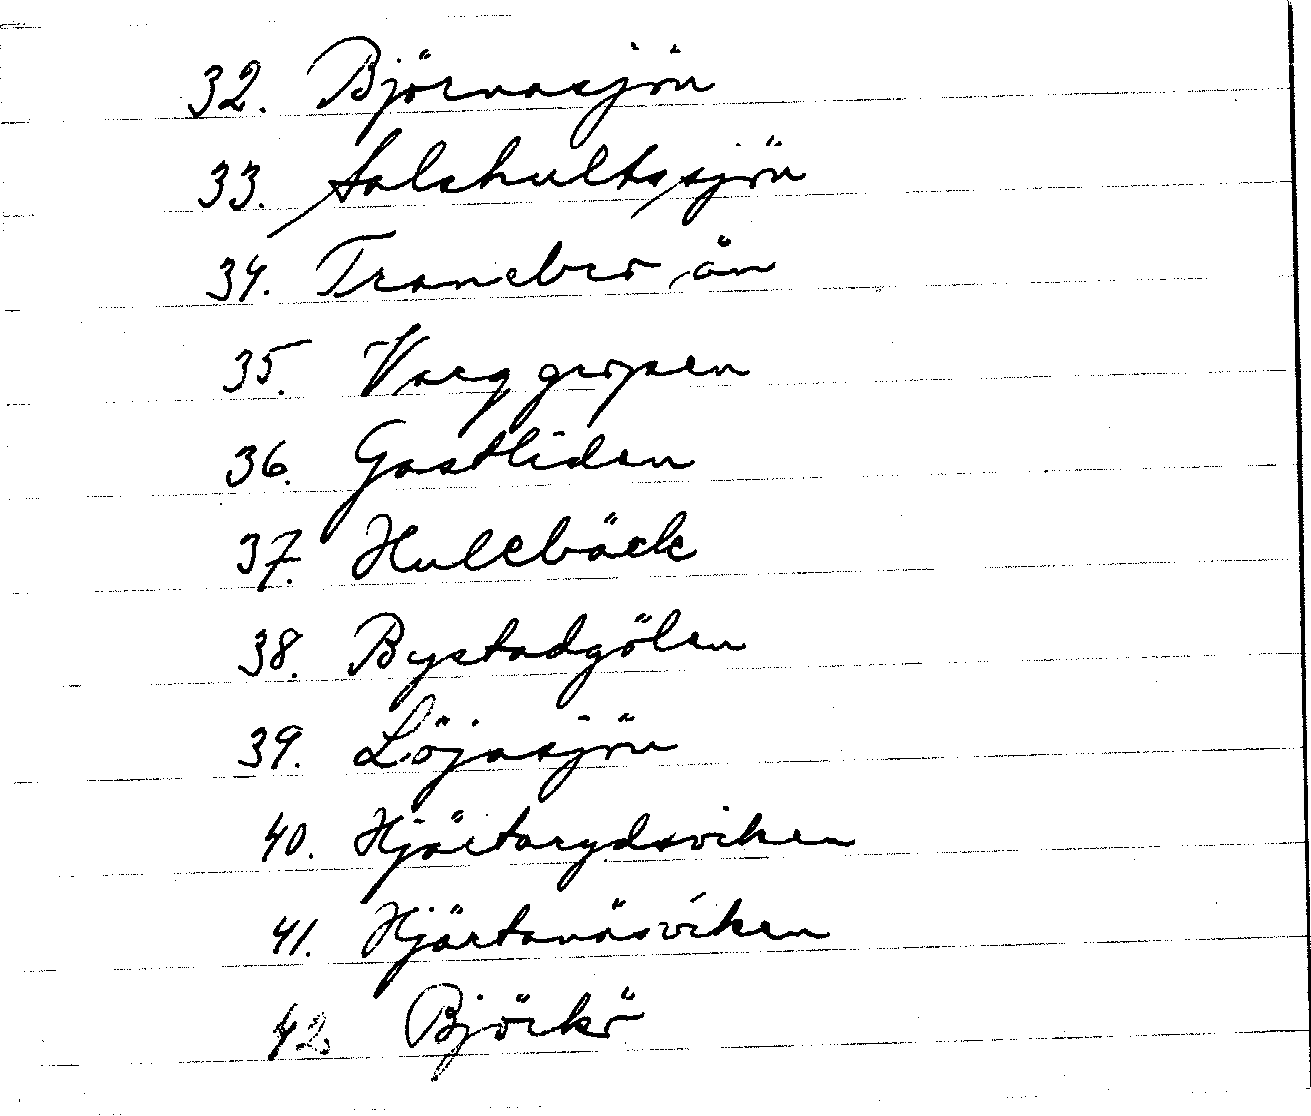 32. Björnasjön
33. Salshultssjön
34. Tranebro ån
35. Varggropen
36. Gastliden
37. Hullbäck
38. Bystadgölen
39. Löjasjön
40. Hjärtarydsviken
41. Hjärtanäsviken
42. Björkö